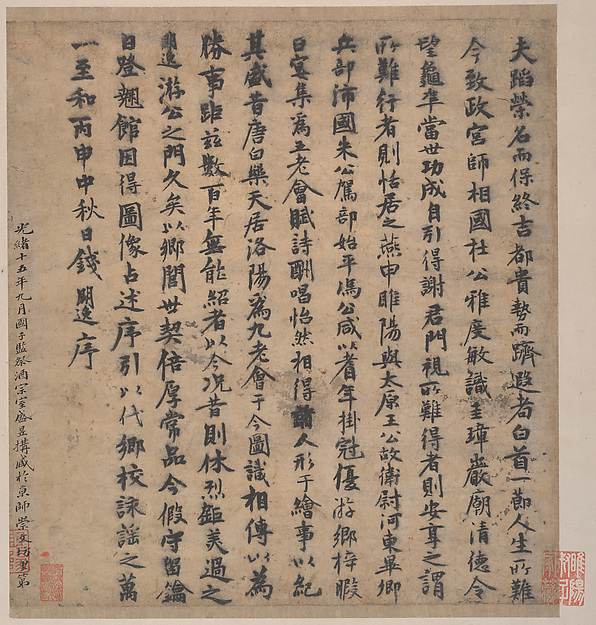 夫蹈榮名而保終吉都貴勢而躋遐耇白首一節人生所難
今致政宮師相國杜公雅度敏識圭璋巖廟清德令
望龜準當世功成自引得謝君門視所難得者則安享之謂
所難行者則恬居之燕申睢陽與太原王公故衛尉河東畢卿
兵部沛國朱公駕部始平馮公咸以耆年掛冠優游鄉梓暇
日宴集爲五老會賦詩酬唱怡然相得諸人形于繪事以紀
其盛昔唐白樂天居洛陽爲九老會于今圖識相傳以爲
勝事距茲數百年無能紹者以今況昔則休烈鉅美過之
明逸游公之門久矣以鄉閭世契倍厚常品今假守留鑰
日登翹館因得圖像占述序引以代鄉校詠謠之萬
一至和丙申中秋日錢明逸序
光緒十五年九月國子監祭酒宗室盛昱搆藏於京師